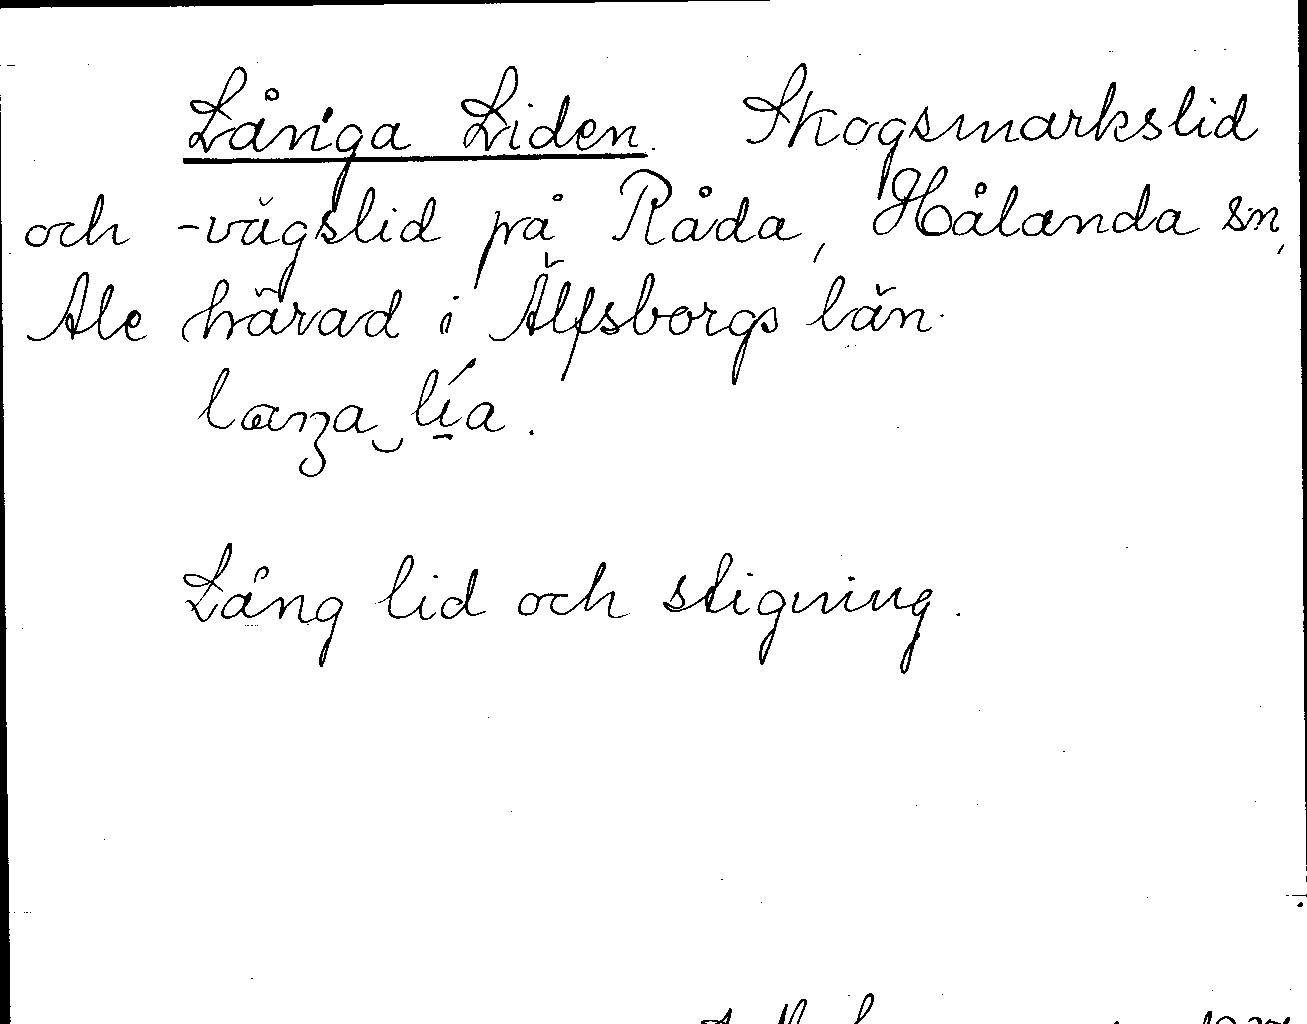 Långa Liden. Skogsmarkslid
och -vägslid på Råda, Hålanda sn,
Ale härad i Älfsborgs län.
Lång lid och stigning.